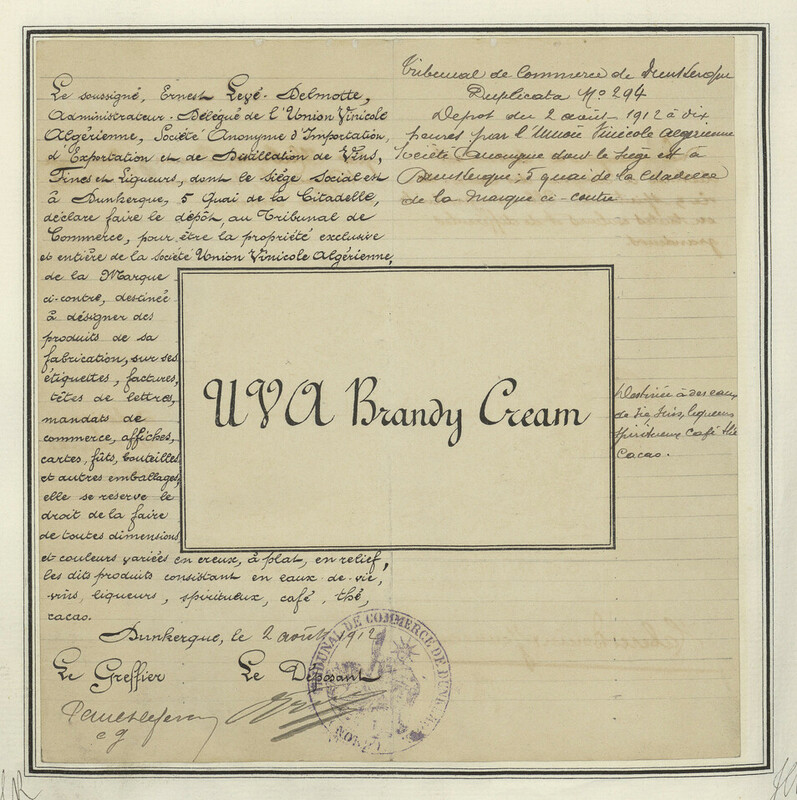 Le soussigné, Ernest Levé-Delmotte,
Administrateur-Délégué de l'Union Vinicole
Algérienne, Société Anonyme d'Importation,
d'Exportation et de Distillation de Vins,
Fines et Liqueurs, dont le siège Social est
à Dunkerque, 5 Quai de la Citadelle,
déclare faire le dépôt, au Tribunal de
Commerce, pour être la propriété exclusive
et entière de la société Union Vinicole Algérienne,
de la Marque
ci-contre, destinée
à désigner des
produits de sa
fabrication, sur ses
étiquettes, factures,
têtes de lettres,
mandats de
commerce, affiches,
cartes, fûts, bouteilles
et autres emballages,
elle se réserve le
droit de la faire
de toutes dimensions
et couleurs variées en creux, à plat, en relief,
les dits produits consistant en eaux-de-vie,
vins, liqueurs, spiritueux, café, thé,
cacao.
Dunkerque, le 2 août 1912
Le Greffier Le Déposant
cg
Tribunal de Commerce de Dunkerque
Duplicata No 294
Depot du 2 août 1912 à dix
heures par l'Union Vinicole Algérienne
Société Anonyme dont le siège est à
Dunkerque, 5 quai de la Citadelle
de la marque ci-contre
UVA Brandy Cream
Destinée à des eaux
de vie, vins, liqueurs
spiritueux café thé
cacao.
TRIBUNAL DE COMMERCE DE DUNKERQUE
(NORD)